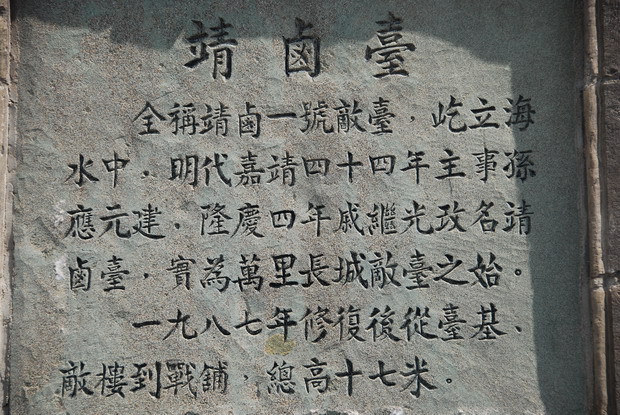 靖鹵臺
全稱靖鹵一號敵臺，屹立海
水中，明代嘉靖四十四年主事孫
應元建，隆慶四年戚繼光改名靖
鹵臺，實為萬里長城敵臺之始。
一九八七年修復後從臺基、
敵樓到戰鋪，總高十七米。